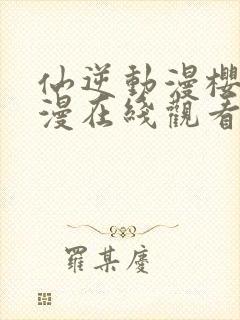 仙逆動漫櫻
漫在綫觀看
羅某慶